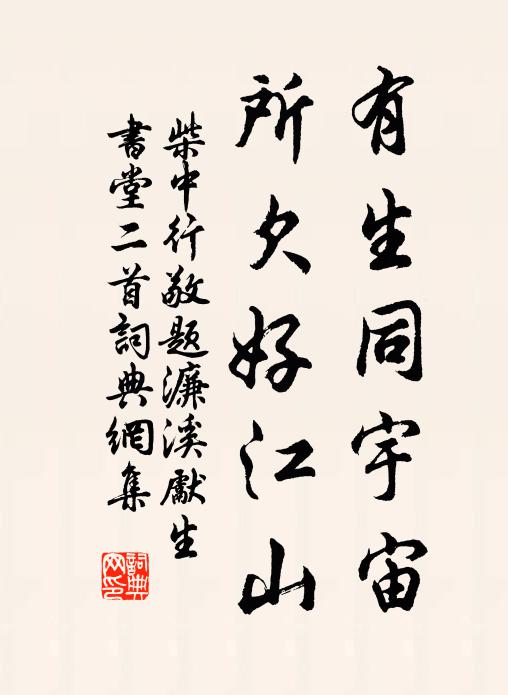 有生同宇宙
所欠好江山
柴中行敬題濂溪獻生
書堂二首詞典網集
詞典網印